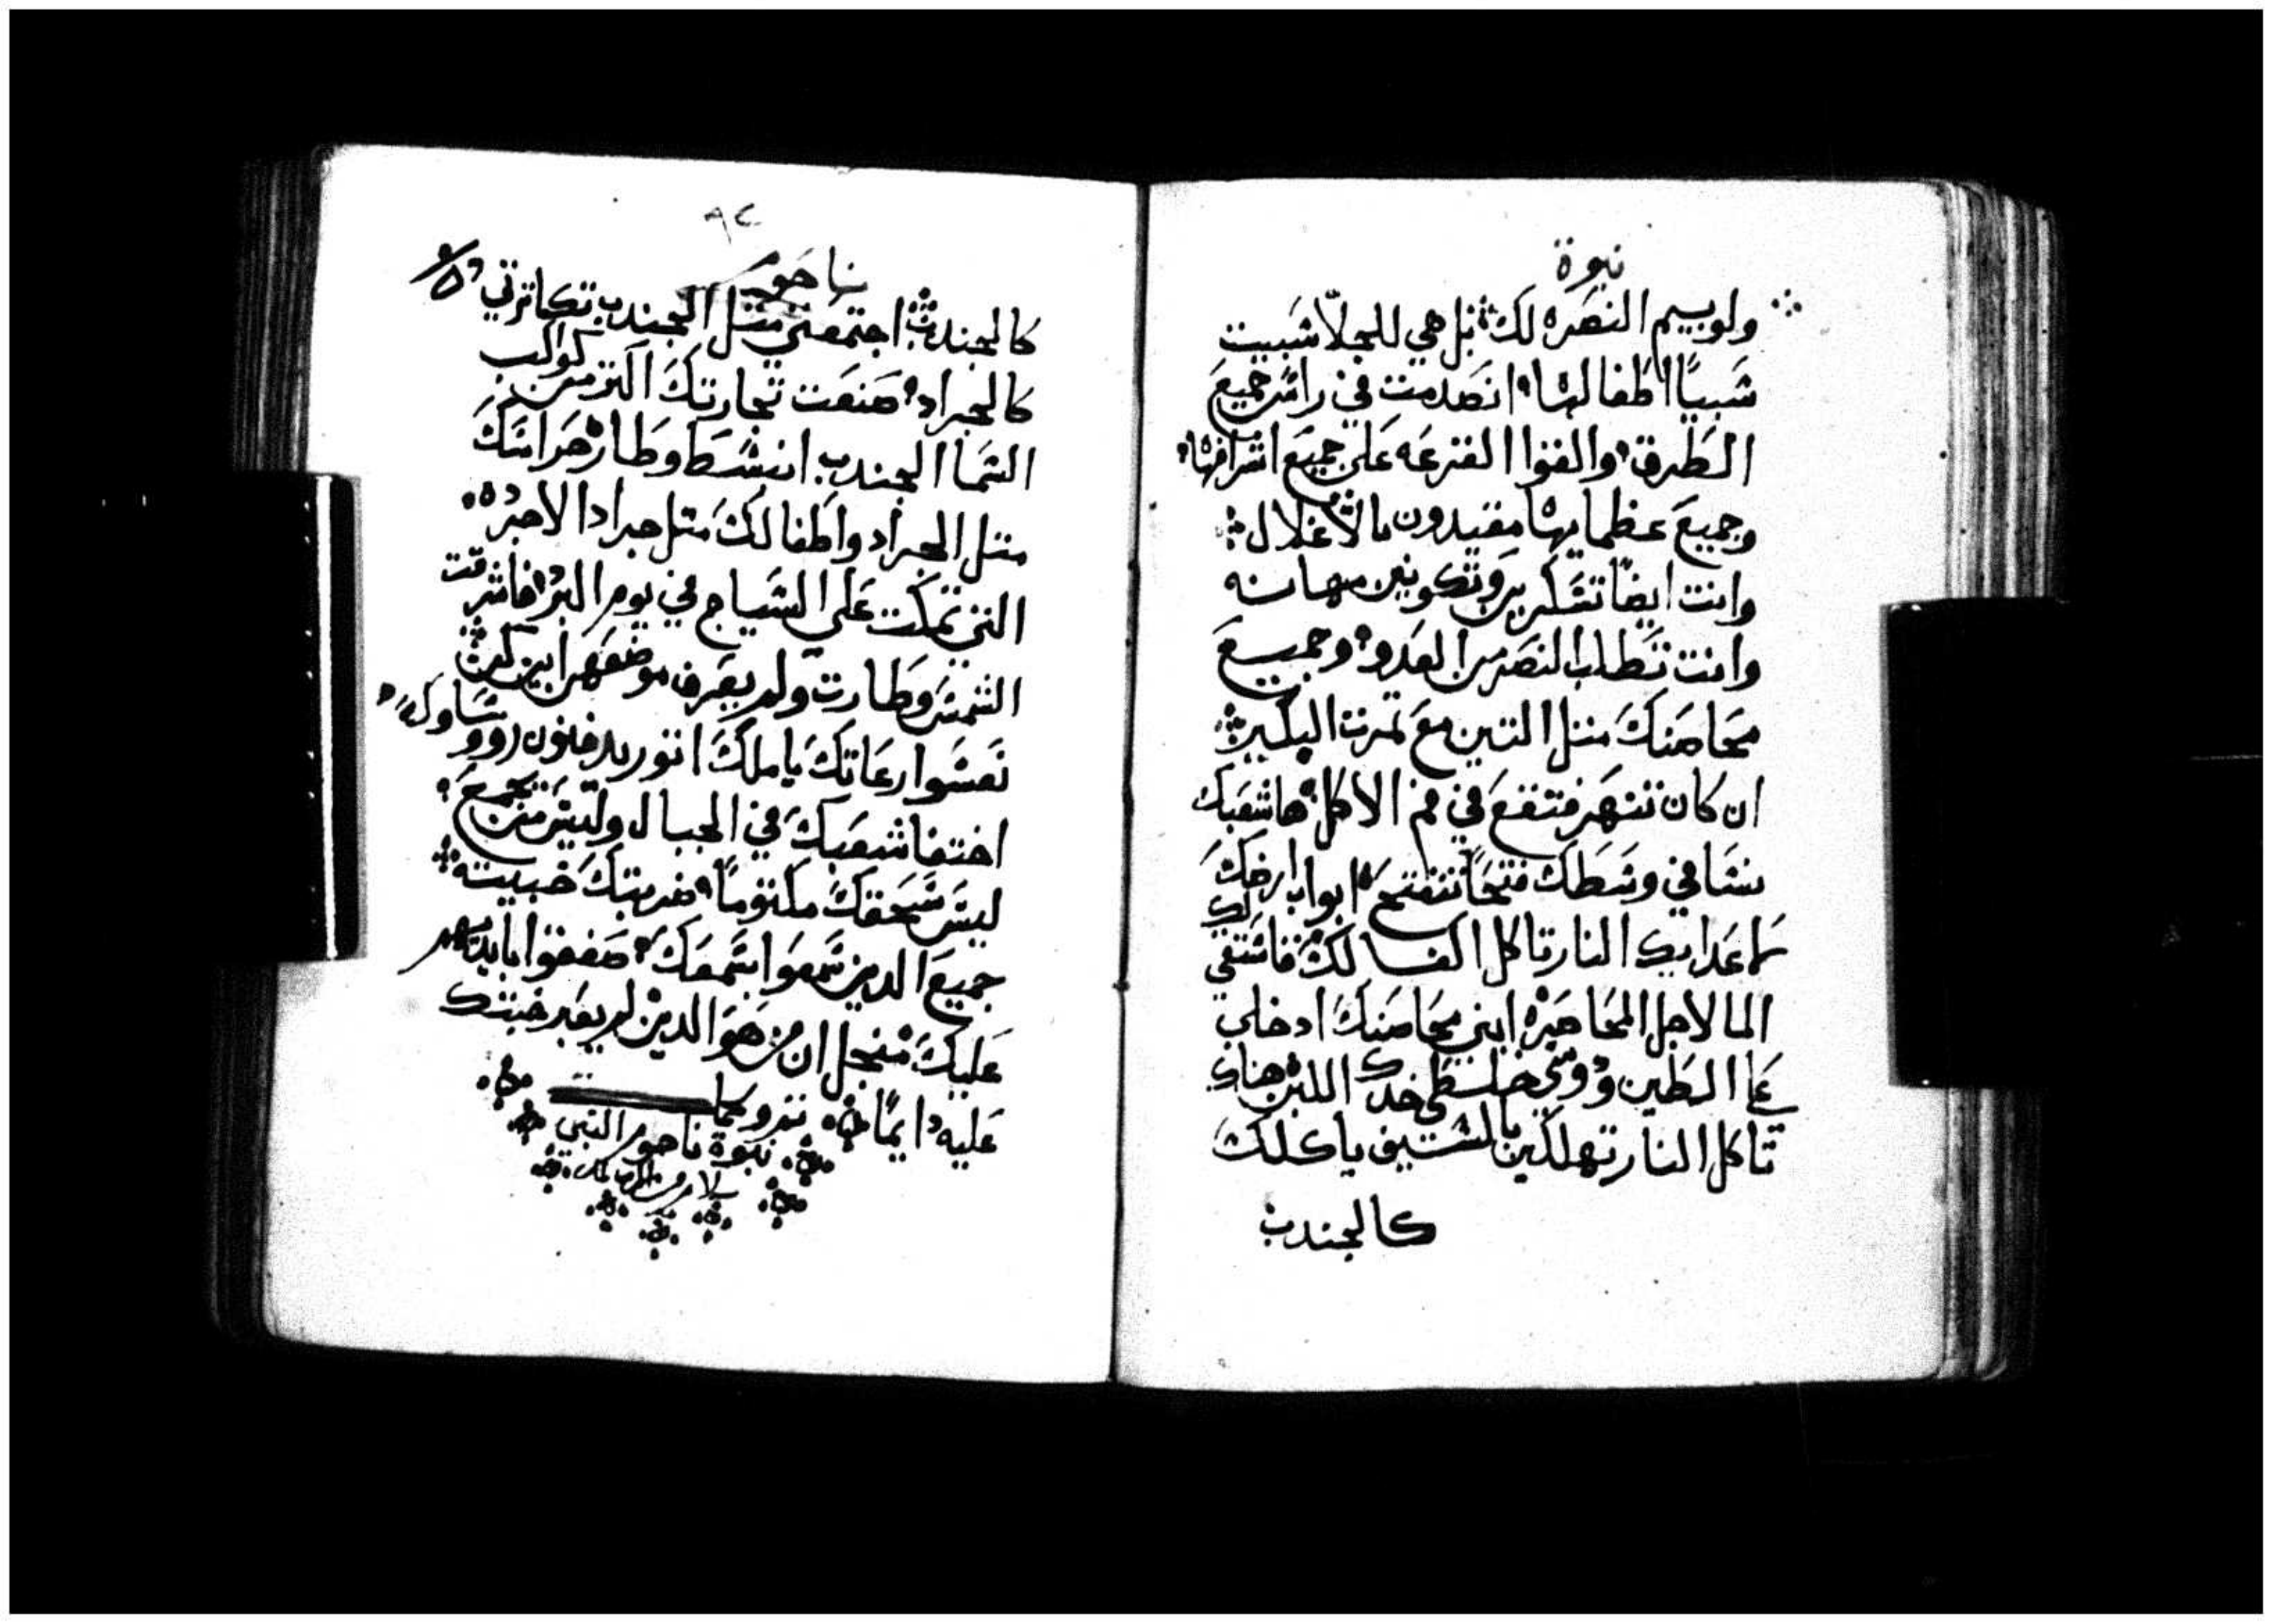 نبوة
ولوبييم النصره لك بل هي للجلا شبيت
شبيًا اطفالها انصدمت في راس جميع
الطرق والقوا القرعه على جميع اشرافها
وجميع عظمايها مقيدون بالاغلال
وانت ايضًا تسكرين وتكونين مهانه
وانت تطلب النصر من العدو وجميع
محاصنك متل التين مع تمرت البكير
ان كان تنهز فتقع في فم الاكل ها شعبك
نسا في وسطك فتحًا تنفتح ابواب ارضك
لاعدايك النار تاكل اقفالك فاستقي لك
الما لاجل المحاصره ابني محاصنك ادخلي
في الطين ودوسي خلطي خدي اللبن هناك
تاكل النار تهلكين بالسيف ياكلك
كالجندب
٩٢
ناحوم
كالجندب اجتمعتي متل الجندب تكاترتي
كالجراد صنعت تجارتك اكتر من كواكب
السما الجندب انبسط وطار حراسك
متل الجراد واطفالك متل جراد الاجره
التي تمكت على السياج في يوم البرد اشرقت
الشمس وطارت ولم يعرف موضعهم اين كن
نعسوا رعاتك يا ملك اتور يدفنون روساوك
اختفا شعبك في الجبال وليس من يجمع
ليس سحقك مكتومًا ضربتك خبيته
جميع الدين سمعوا بسمعك صفقوا بايديهم
عليك من اجل ان من هو الدي لم يعبر خبتك
عليه دايمًا تمت وكملت
نبوة ناحوم النبي
بسلام من الرب امين